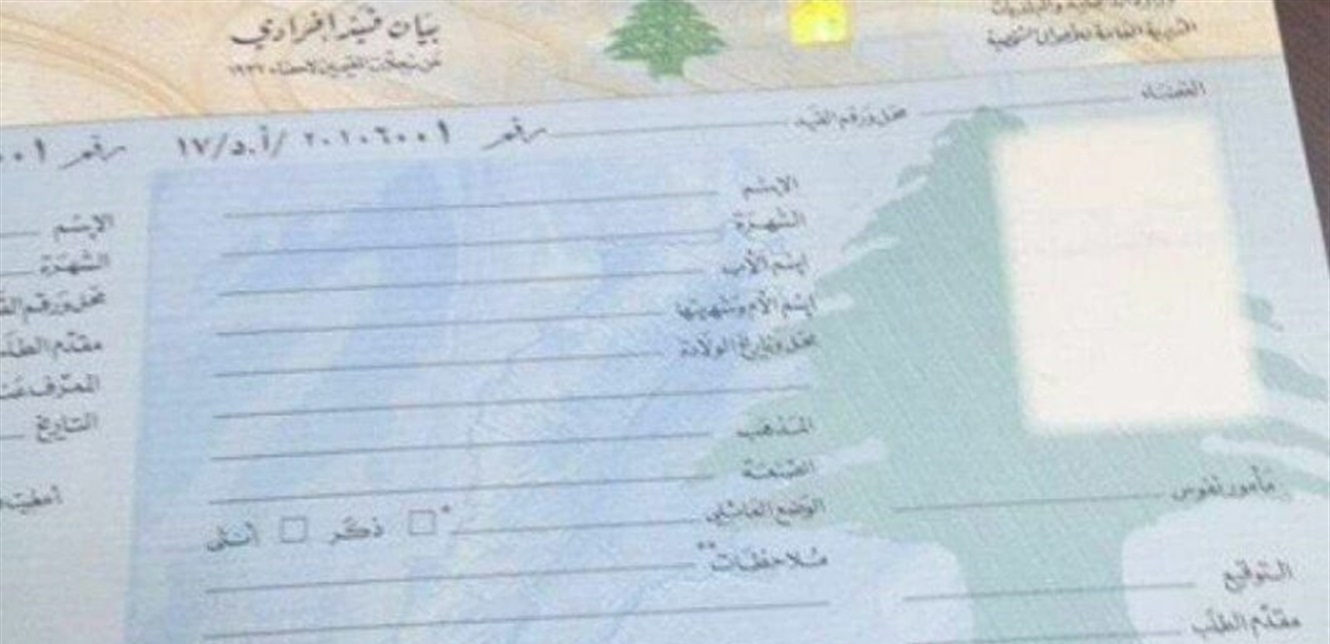 وزارة الداخلية والبلديات
المديرية العامة للأحوال الشخصية
بيان قيد إفرادي
عن سجلات المقيمين لإحصاء ١٩٣٢
القضاء
محل ورقم القيد
رقم ٢٠١٠٦٠٠١ /أ.د/١٧
رقم
الإسم
الشهرة
إسم الأب
إسم الأم وشهرتها
محل وتاريخ الولادة
المذهب
الصنعة
الوضع العائلي * ذكر أنثى
ملاحظات **
مأمور نفوس
التوقيع
مقدّم الطلب
الإسم
الشهرة
محل ورقم
مقدّم الطلب
المعرّف
التاريخ